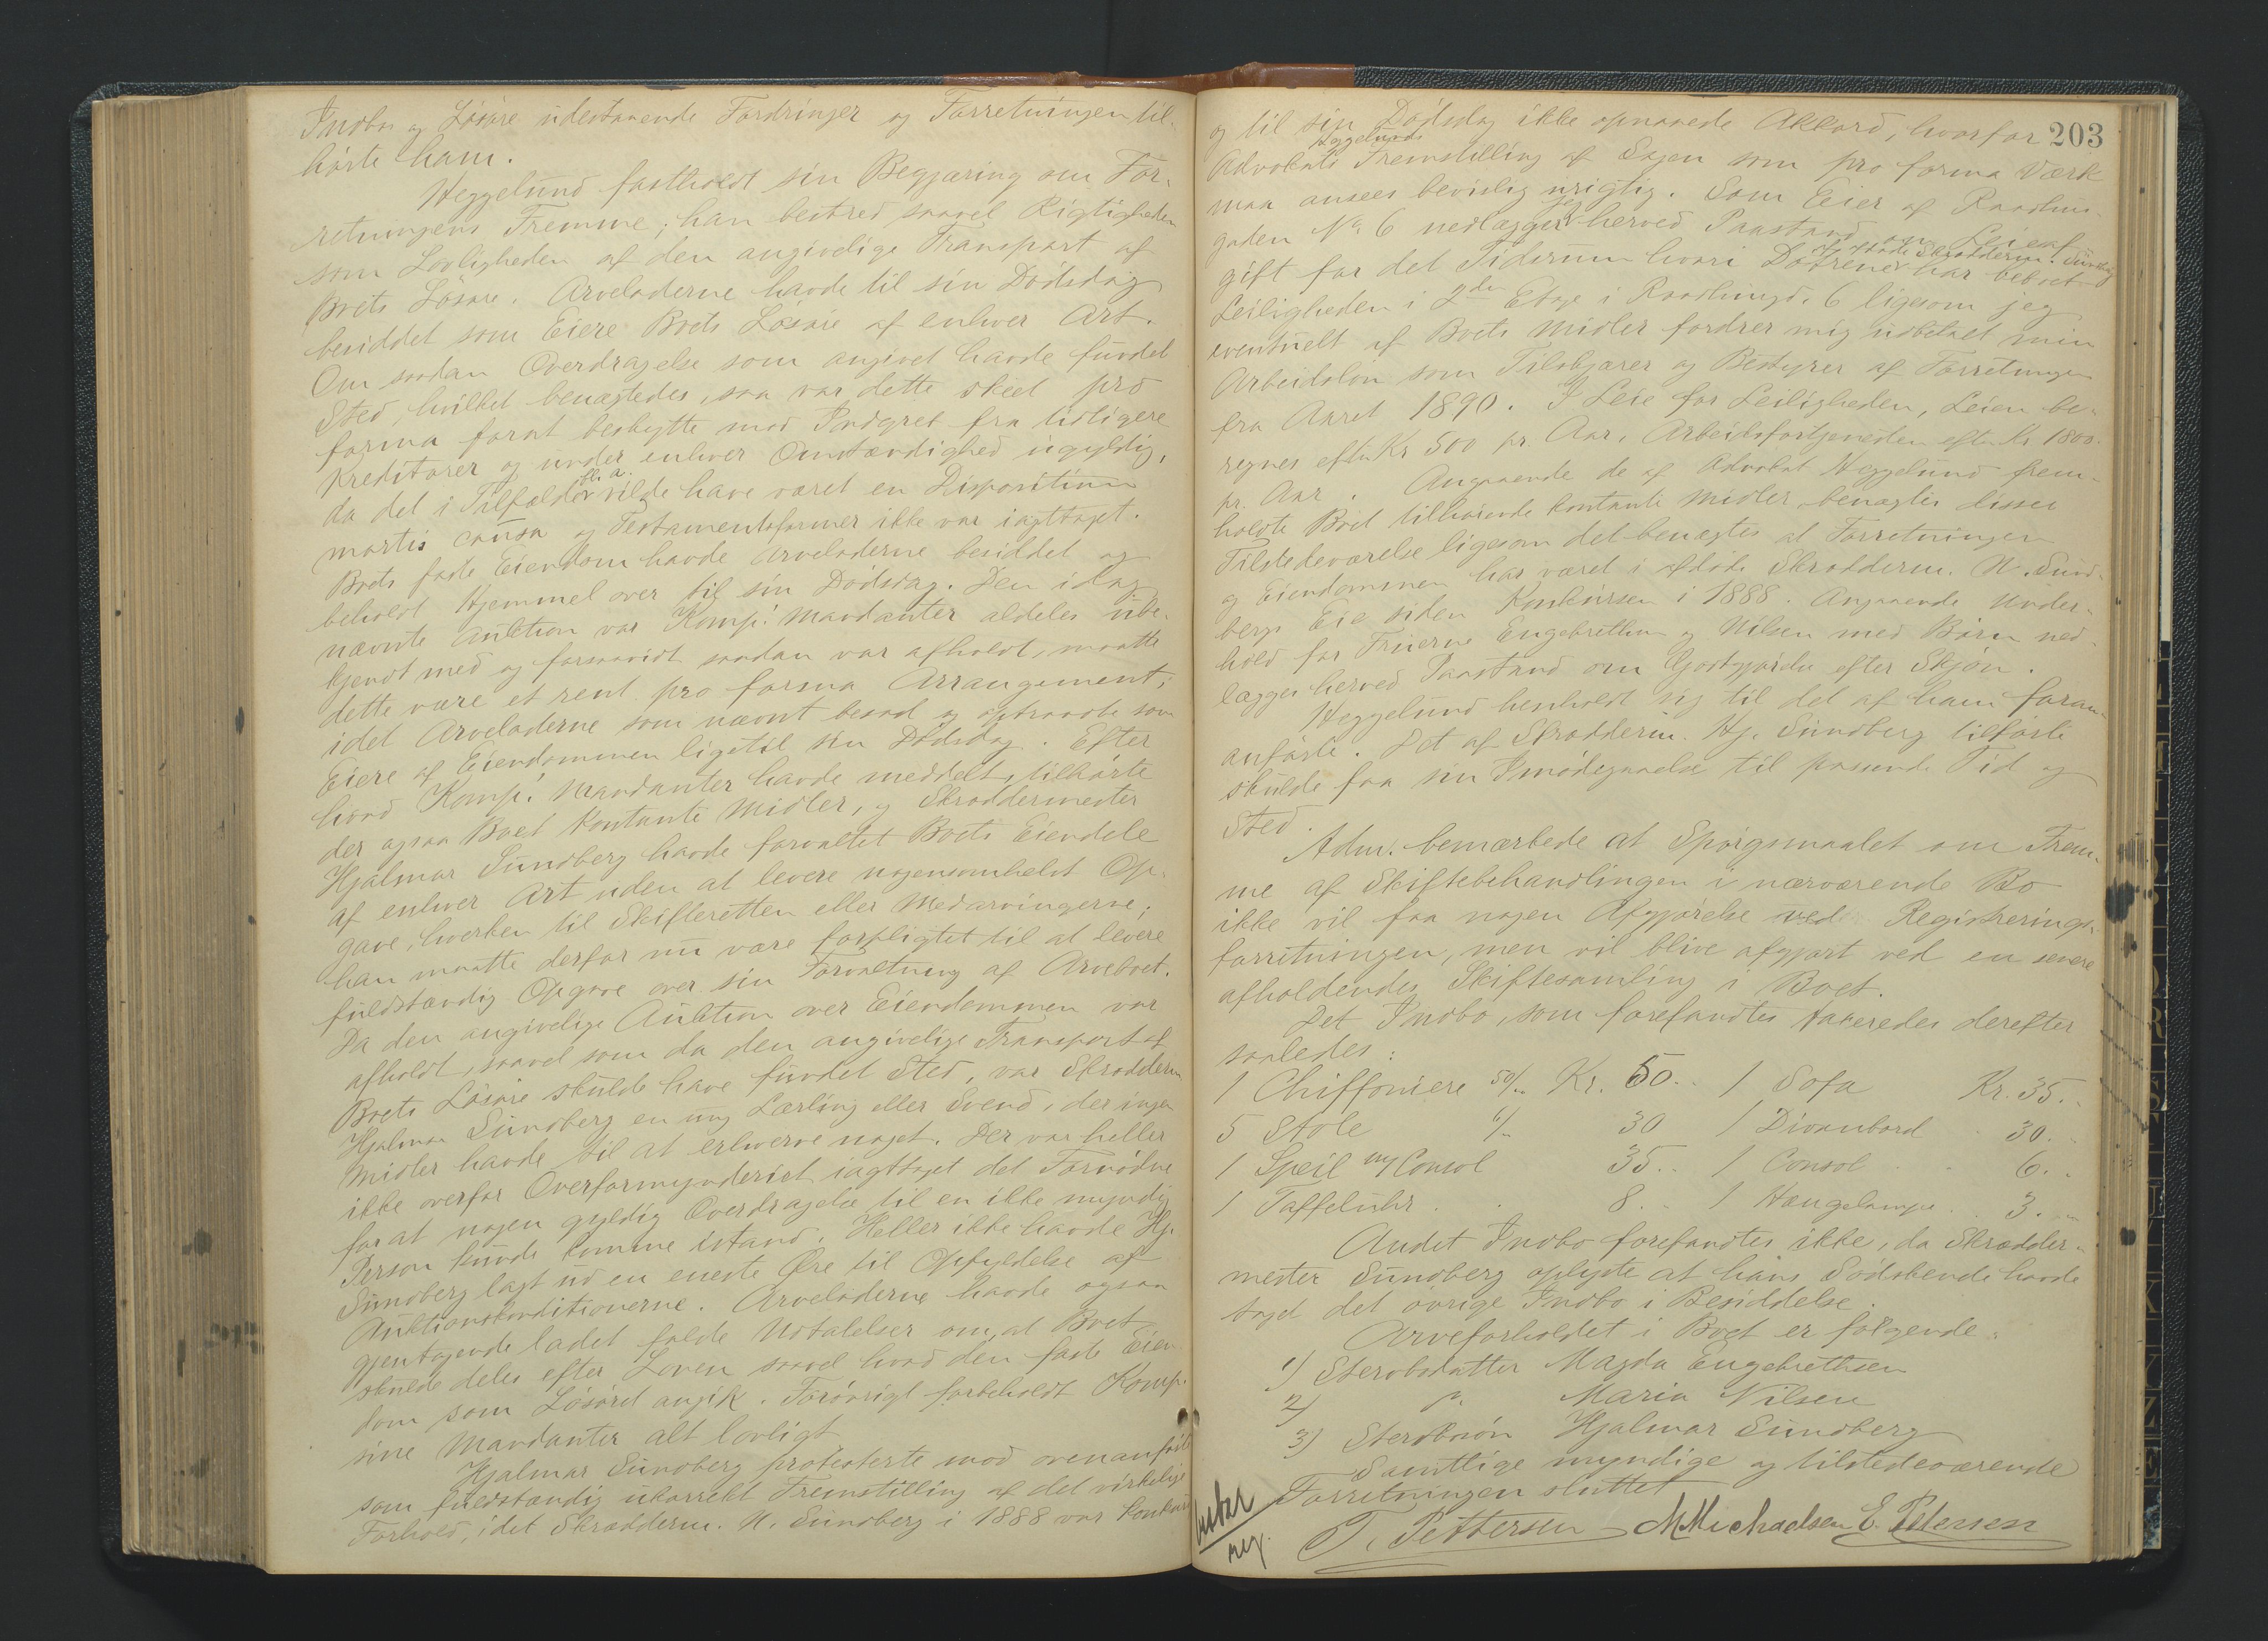 Indbo og Løsøre udestaaende Fordringer og Forretningen til-
hørte ham.
Heggelund fastholdt sin Begjæring om For-
retningens Fremme; han bestred saavel Rigtigheden
som Lovligheden af den angivelige Transport af
Boets Løsøre. Arveladerne havde til sin Dødsdag
besiddet som Eiere Boets Løsøre af enhver Art.
Om saadan Overdragelse som angivet havde fundet
Sted, hvilket benægtedes, saa var dette skeet pro
forma forat beskytte mod Indgreb fra tidligere
Kreditorer og under enhver Omstændighed ugyldig,
da det i Tilfælde bl. a. vilde have været en Disposition
mortis causa og Testamentsformer ikke var iagttaget.
Boets faste Eiendom havde Arveladerne besiddet og
beholdt Hjemmel over til sin Dødsdag. Den idag
nævnte Auktion var Komp.s Mandanter aldeles ube-
kjendt med og forsaavidt saadan var afholdt, maatte
dette være et rent pro forma Arrangement,
idet Arveladerne som nævnt besad og optraadte som
Eiere af Eiendommen ligetil sin Dødsdag. Efter
hvad Komp.s Mandanter havde meddelt, tilhørte
der ogsaa Boet kontante Midler, og Skræddermester
Hjalmar Sundberg havde forvaltet Boets Eiendele
af enhver Art uden at levere nogensomhelst Op-
gave, hverken til Skifteretten eller Medarvingerne;
han maatte derfor nu være forpligtet til at levere
fuldstændig Opgave over sin Forvaltning af Arveboet.
Da den angivelige Auktion over Eiendommen var
afholdt, saavel som da den angivelige Transport af
Boets Løsøre skulde have fundet Sted, var Skrædderm.
Hjalmar Sundberg en ung Lærling eller Svend, der ingen
Midler havde til at erhverve noget. Der var heller
ikke overfor Overformynderiet iagttaget det Fornødne
for at nogen gyldig Overdragelse til en ikke myndig
Person kunde komme istand. Heller ikke havde Hj.
Sundberg lagt ud en eneste Øre til Opfyldelse af
Auktionskonditionerne. Arveladerne havde ogsaa
gjentagende ladet falde Udtalelser om, at Boet
skulde deles efter Loven saavel hvad den faste Eien-
dom som Løsøret angik. Forøvrigt forbeholdt Komp.
sine Mandanter alt lovligt
Hjalmar Sundberg protesterte mod ovenanførte
som fuldstændig ukorrekt Fremstilling af det virkelige
Forhold, idet Skrædderm. N. Sundberg i 1888 var Konkurs
203
og til sin Dødsdag ikke opnaaede Akkord, hvorfor
Advokat Heggelunds Fremstilling af Sagen som pro forma Værk
maa ansees bevislig urigtig. Som Eier af Raadhus-
gaden No 6 nedlægger jeg herved Paastand om Leieaf-
gift for det Tidsrum hvori Døtrene Skrædderm. Sundberg har beboet
Leiligheden i 2den Etage i Raadhusgd. 6 ligesom jeg
eventuelt af Boets Midler fordrer mig udbetalt min
Arbeidsløn som Tilskjærer og Bestyrer af Forretningen
fra Aaret 1890. I Leie for Leiligheden, Leien be-
regnes efter Kr 500 pr. Aar, Arbeidsfortjenesten efter Kr 1800.
pr. Aar. Angaaende de af Advokat Heggelund frem-
holdte Boet tilhørende kontante Midler benægtes disses
Tilstedeværelse ligesom det benægtes at Forretningen
og Eiendommen har været i afdøde Skrædderm. N. Sund-
bergs Eie siden Konkursen i 1888. Angaaende Under-
hold for Fruerne Engebrethsen og Nilsen med Børn ned-
lægges herved Paastand om Godtgjørelse efter Skjøn.
Heggelund henholdt sig til det af ham foran
anførte. Det af Skrædderm. Hj. Sundberg tilførte
skulde faa sin Imødegaaelse til passende Tid og
Sted.
Adm. bemærkede at Spørgsmaalet om Frem-
me af Skiftebehandlingen i nærværende Bo
ikke vil faa nogen Afgjørelse ved Registrerings-
forretningen, men vil blive afgjort ved en senere
afholdendes Skiftesamling i Boet.
Det Indbo, som forefandtes taxeredes derefter
saaledes:
1 Chiffoniere 50/.. Kr. 50.. 1 Sofa Kr. 35..
5 Stole 6/.. 30 1 Divanbord 30..
1 Speil m/ Consol 35.. 1 Consol 6..
1 Taffeluhr 8.. 1 Hængelampe 3..
Andet Indbo forefandtes ikke, da Skrædder-
mester Sundberg oplyste at hans Sødskende havde
taget det øvrige Indbo i Besiddelse.
Arveforholdet i Boet er følgende:
1) Stervbsdatter Magda Engebrethsen
2) " Maria Nilsen
3) Stervbsøn Hjalmar Sundberg
Samtlige myndige og tilstedeværende
Forretningen sluttet
T. Pettersen M Michaelsen E. Petersen
reg.